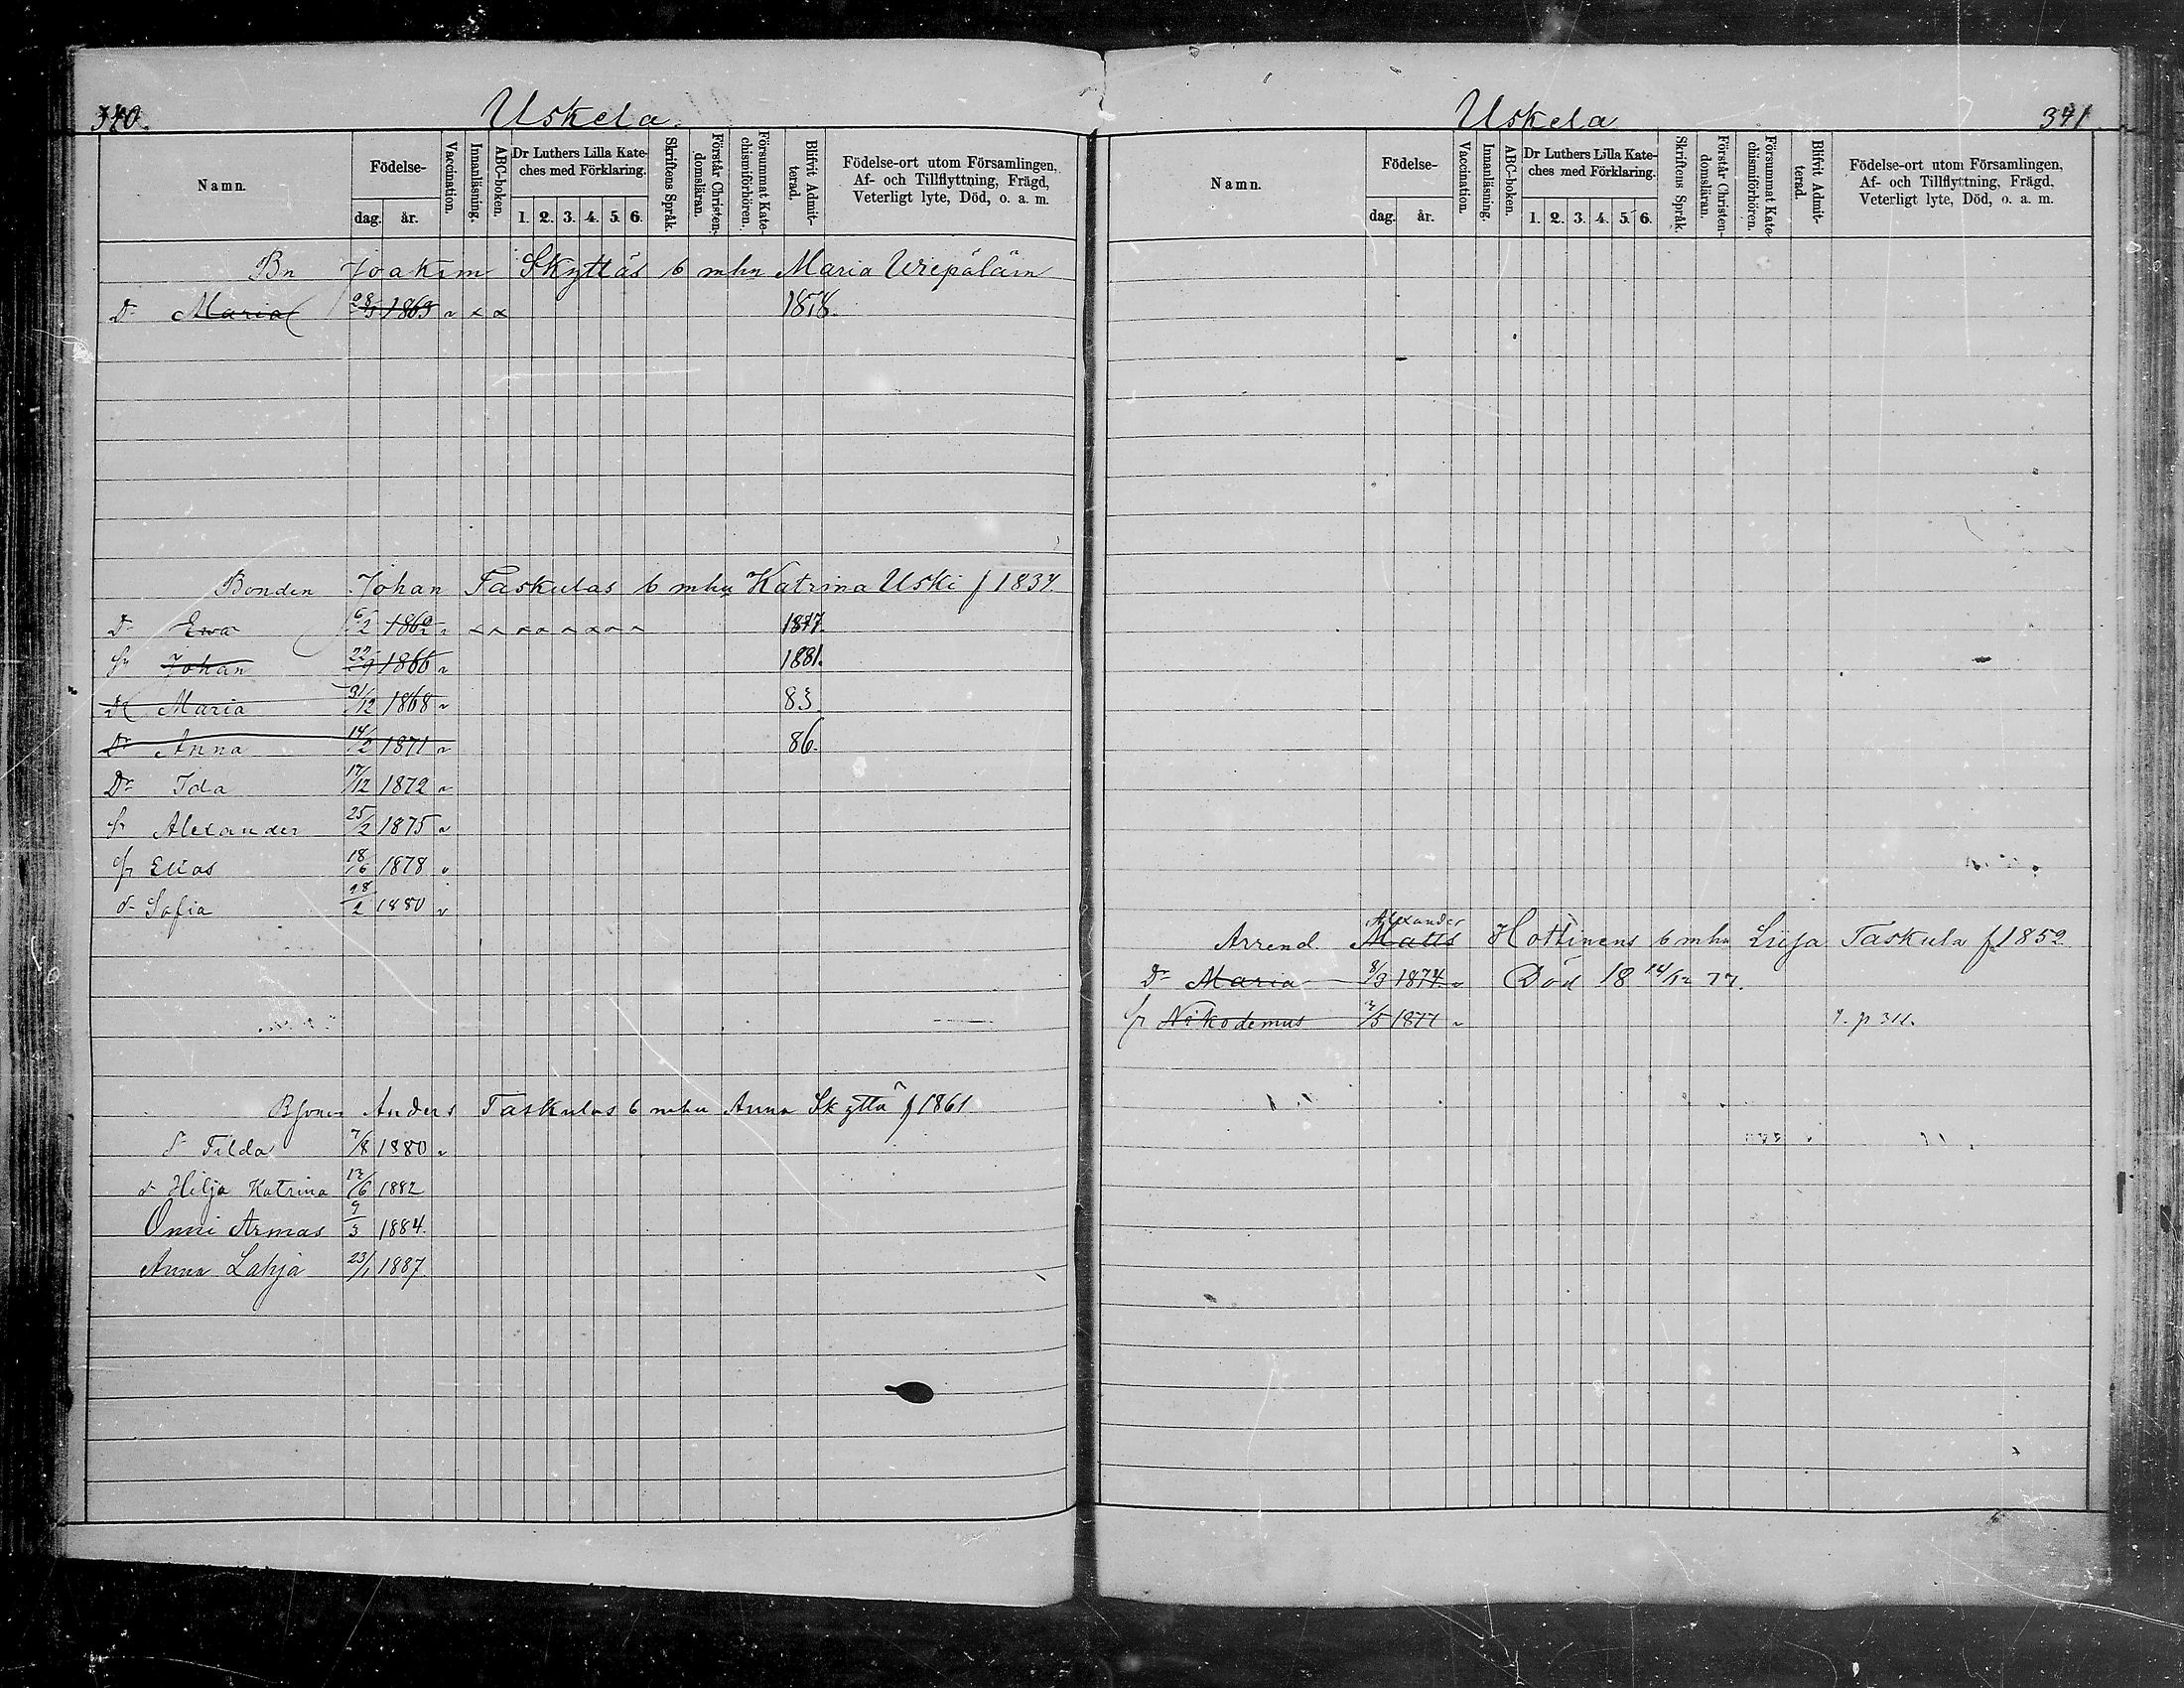 340.
Uskela.
Namn.
Födelse-
dag. år.
Vaccination.
Innanläsning.
ABC-boken.
Dr Luthers Lilla Kate-
ches med Förklaring.
1. 2. 3. 4. 5. 6.
Skriftens Språk.
Förstår Christen-
domsläran.
Försummat Kate-
chismiförhören.
Blifvit Admit-
terad.
Födelse-ort utom Församlingen,
Af- och Tillflyttning, Frägd,
Veterligt lyte, Död, o. a. m.
Bn Joakim Skyttäs b mhu Maria
Dr Maria 1863 v x x 1878.
Bonden Johan Taskulas b mhu Katrina Uski f 1834.
Dr Ewa 6/2 1862 v 1877.
Sr Johan 22/9 1866 v 1881.
Dr Maria 31/12 1868 v 83.
Dr Anna 14/2 1871 v 86.
Dr Ida 17/12 1872 v
Sr Alexander 25/2 1875 v
Sr Elias 18/6 1878 v
dr Sofia 18/2 1880 v
Anders Taskulas b mhu Anna Skyttä f 1861
dr Tilda 7/8 1880 v
dr Hilja Katrina 12/6 1882
Onni Armas 9/3 1884.
Anna Lahja 23/1 1887.
Uskela
341
Namn.
Födelse-
dag. år.
Vaccination.
Innanläsning.
ABC-boken.
Dr Luthers Lilla Kate-
ches med Förklaring.
1. 2. 3. 4. 5. 6.
Skriftens Språk.
Förstår Christen-
domsläran.
Försummat Kate-
chismiförhören.
Blifvit Admit-
terad.
Födelse-ort utom Församlingen,
Af- och Tillflyttning, Frägd,
Veterligt lyte, Död, o. a. m.
Alexander
Arrend. Matts Hottinens b mhu Liisa Taskula f 1852
Dr Maria 8/3 1874 v Död 18 14/12 77.
Sr Nikodemus 1877 v p 311.